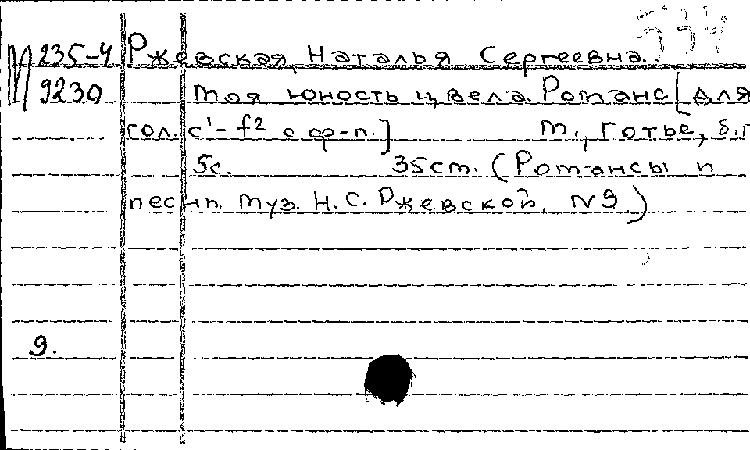 534
М 235-4 Ржевская, Наталья Сергеевна.
9230 Моя юность цвела. Романс [для
гол. c¹-f² с ф-п.] М., Готье, б.г.
5с. 35см. (Романсы и
песни. Муз. Н. С. Ржевской. №9)
9.